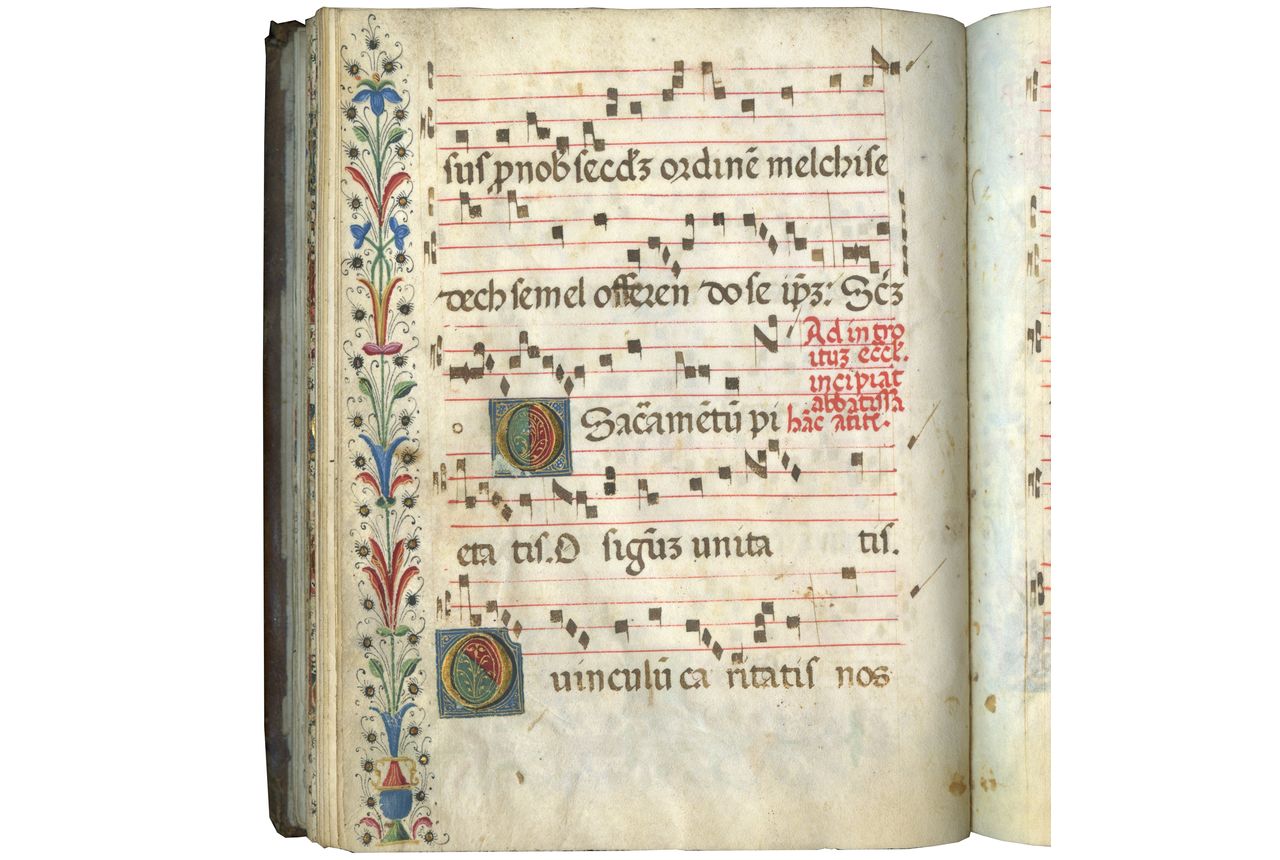 sus ꝓnob secdꝫ ordinē melchise
dech semel offeren do se ip̄ꝫ: Sc̄ꝫ
Ad intro
ituꝫ eccl̄.
incipiāt
abbatissa
O Sac̄amētū pi hāc atitē.
eta tis. O sigūꝫ unita tis.
O uinculū ca ritatis nos